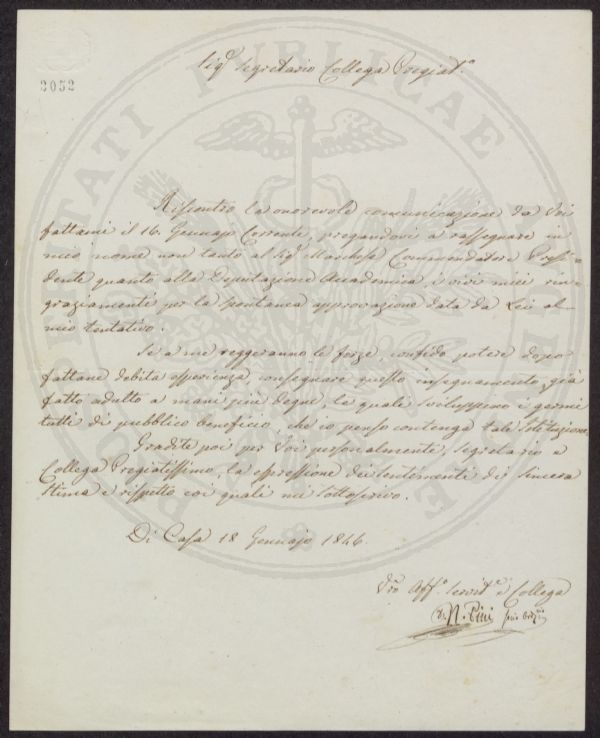 2052
Sig.r Segretario Collega Pregiat.o
Riscontro la onorevole comunicazione da Voi
fattami il 16. Gennajo Corrente, pregandovi a rassegnare in
mio nome non tanto al Sig.r Marchese Commendatore Presi-
dente quanto alla Deputazione Accademica, i vivi miei rin-
graziamente per la spontanea approvazione data da Lei al
mio tentativo.
Se a me reggeranno le forze, confido potere dopo
fattane debita esperienza, consegnare questo insegnamento, già
fatto adulto a mani più degne, le quale sviluppino i germi
tutti di pubblico beneficio, che io penso contenga tale Istituzione.
Gradite poi per Voi personalmente, Segretario e
Collega Pregiatissimo, la espressione dei sentimenti di sincera
stima e rispetto coi quale mi sottoscrivo.
Di Casa 18 Gennajo 1846.
Vro Aff.o Servit.e e Collega
D. N. Pini
PROSPERITATI PUBLICAE